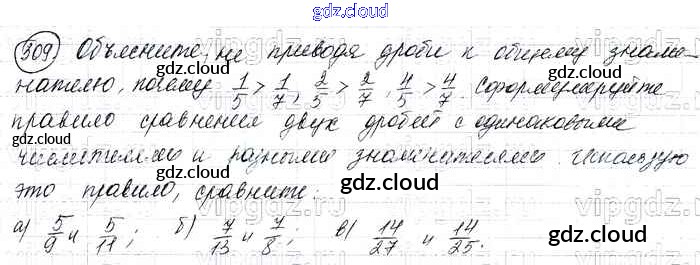 gdz.cloud
309. Объясните, не приводя дроби к общему знаме-
нателю, почему 1/5 > 1/7, 2/5 > 2/7, 4/5 > 4/7. Сформулируйте
gdz.cloud gdz.cloud gdz.cloud
правило сравнения двух дробей с одинаковыми
числителями и разными знаменателями. Используя
gdz.cloud
это правило, сравните:
gdz.cloud
а) 5/9 и 5/11; б) 7/13 и 7/8; в) 14/27 и 14/25.
gdz.cloud gdz.cloud